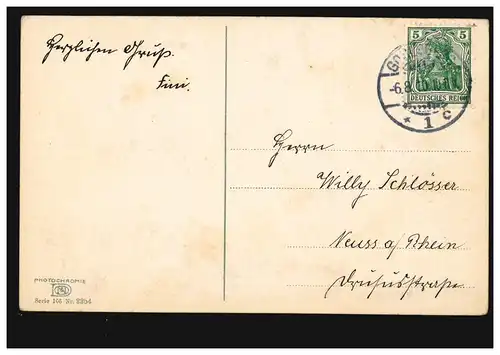 Herzlichen Gruß.
Fini.
PHOTOCHROMIE
Serie 106 Nr. 2354
5 5
DEUTSCHES REICH
-6.8.
* 1 c
Herrn
Willy Schlösser
Neuss a/Rhein
Drususstraße.